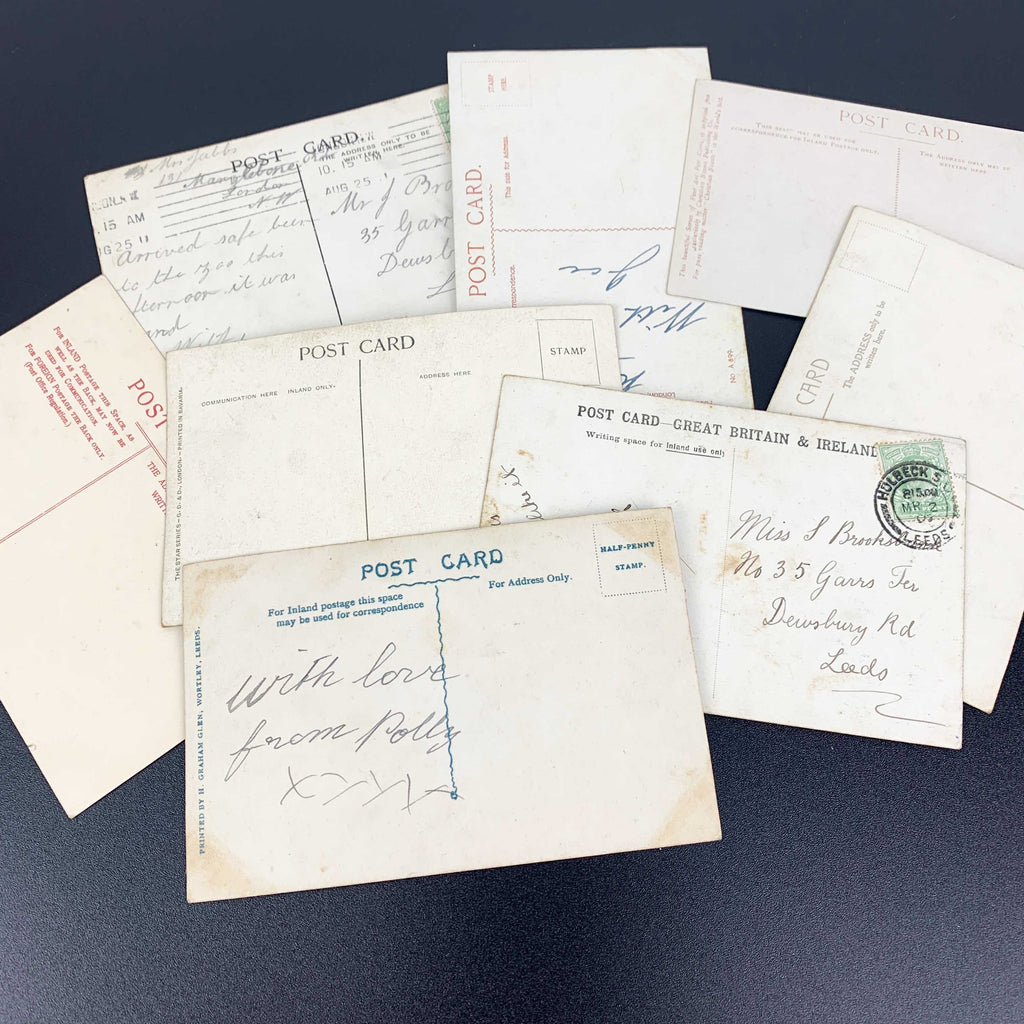 POST CARD.
THE ADDRESS ONLY TO BE
WRITTEN HERE.
Mrs Gibbs
131
Marylebone
London
N.W.
10.15 AM
AUG 25 11
.15 AM
G 25 11
Arrived safe
to the zoo this
afternoon it was
Mr J Bro
35 Garr
Dewsb
L
STAMP
HERE.
POST CARD.
This side for Address.
respondence.
With
Joe
No A 899.
POST CARD.
THIS SPACE MAY BE USED FOR
CORRESPONDENCE FOR INLAND POSTAGE ONLY.
THE ADDRESS ONLY MAY BE
WRITTEN HERE
CARD
The ADDRESS only to be
written here.
FOR INLAND POSTAGE THIS SPACE, AS
WELL AS THE BACK, MAY NOW BE
USED FOR COMMUNICATION.
FOR FOREIGN POSTAGE THE BACK ONLY.
(Post Office Regulation.)
POST
THE AD
WRIT
POST CARD
COMMUNICATION HERE INLAND ONLY.
ADDRESS HERE
STAMP
THE STAR SERIES – G. D. & D., LONDON. – PRINTED IN BAVARIA.
POST CARD—GREAT BRITAIN & IRELAND
Writing space for inland use only
HOLBECK S.O
8 15 PM
MR 2
LEEDS
Miss S Brooks
No 35 Garrs Ter
Dewsbury Rd
Leeds
POST CARD
HALF-PENNY
STAMP.
For Inland postage this space
may be used for correspondence
For Address Only.
PRINTED BY H. GRAHAM GLEN, WORTLEY, LEEDS.
with love
from Polly
XXXX